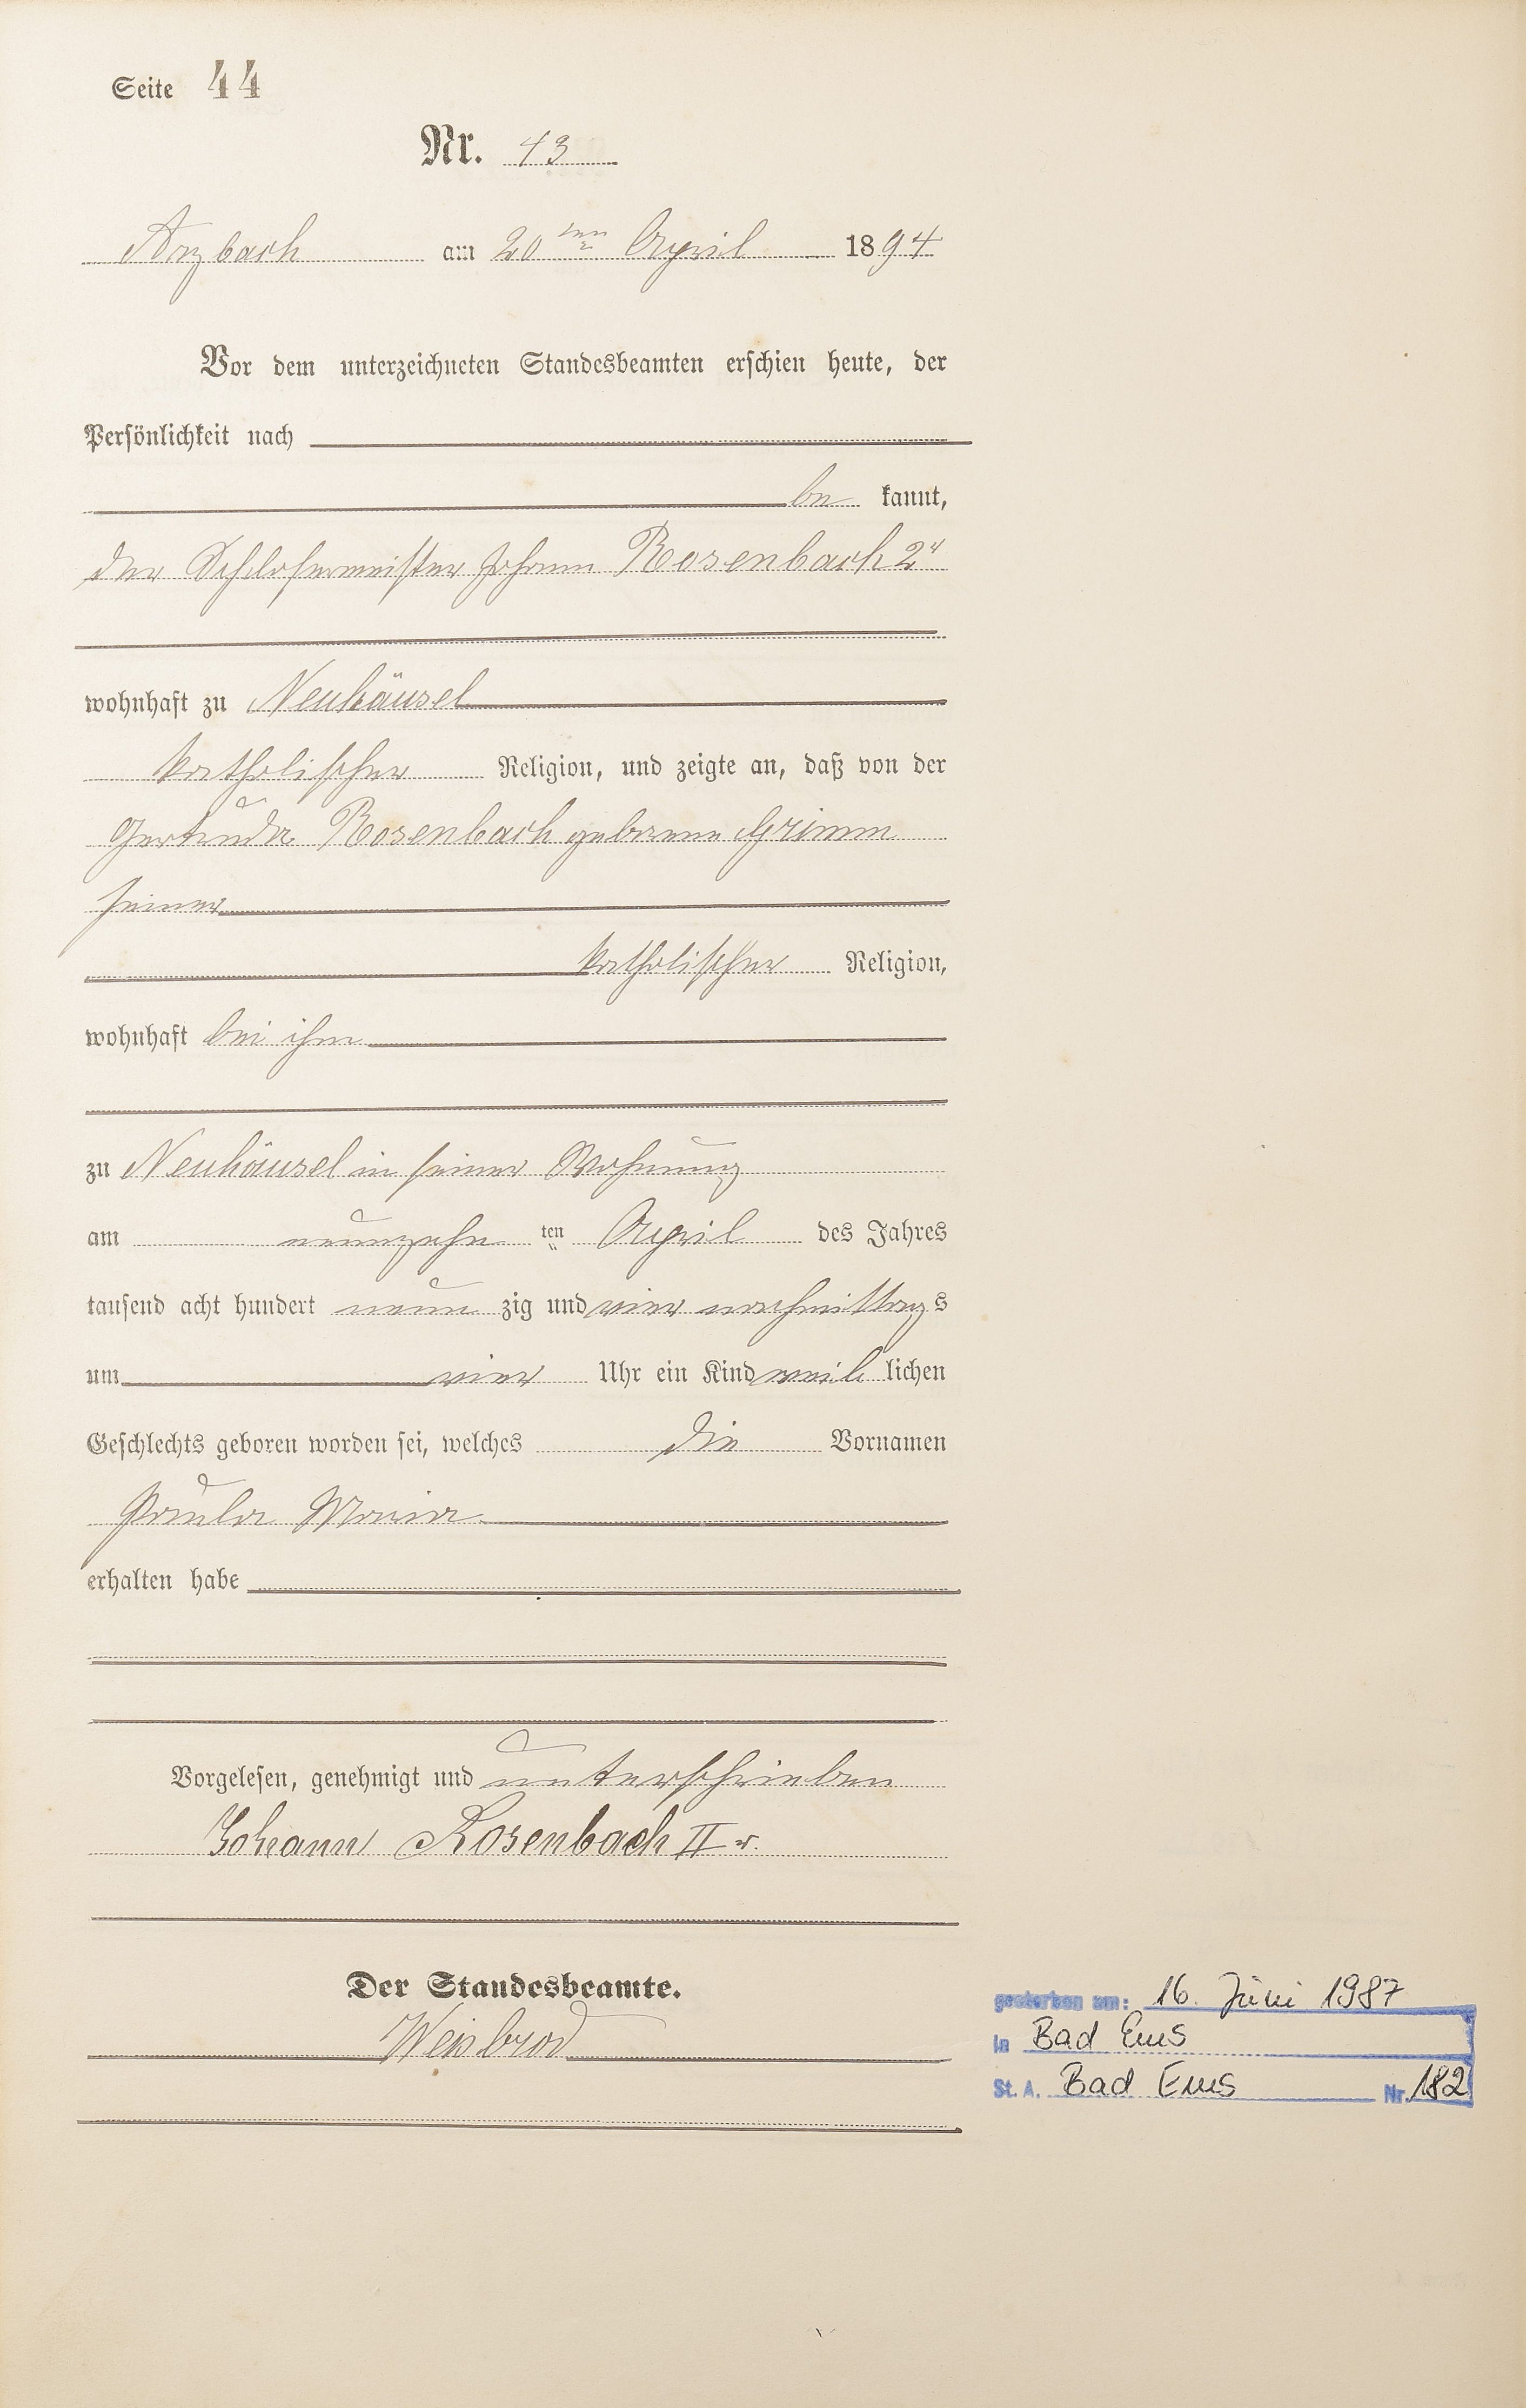 Seite 44
Nr. 43
Arzbach am 20ten April 1894
Vor dem unterzeichneten Standesbeamten erschien heute, der
Persönlichkeit nach
be kannt,
der Schlossermeister Johann Rosenbach 2r
wohnhaft zu Neuhäusel
katholischer Religion, und zeigte an, daß von der
Gertruda Rosenbach geborene Grimm
seiner
katholischer Religion,
wohnhaft bei ihm
zu Neuhäusel in seiner Wohnung
am neunzehn ten April des Jahres
tausend acht hundert neun zig und vier nachmittags
um vier Uhr ein Kind weib lichen
Geschlechts geboren worden sei, welches die Vornamen
Paula Maria
erhalten habe
Vorgelesen, genehmigt und unterschrieben
Johann Rosenbach II r.
Der Standesbeamte.
Weisbrod
gestorben am: 16. Juni 1987
in Bad Ems
St. A. Bad Ems Nr. 182